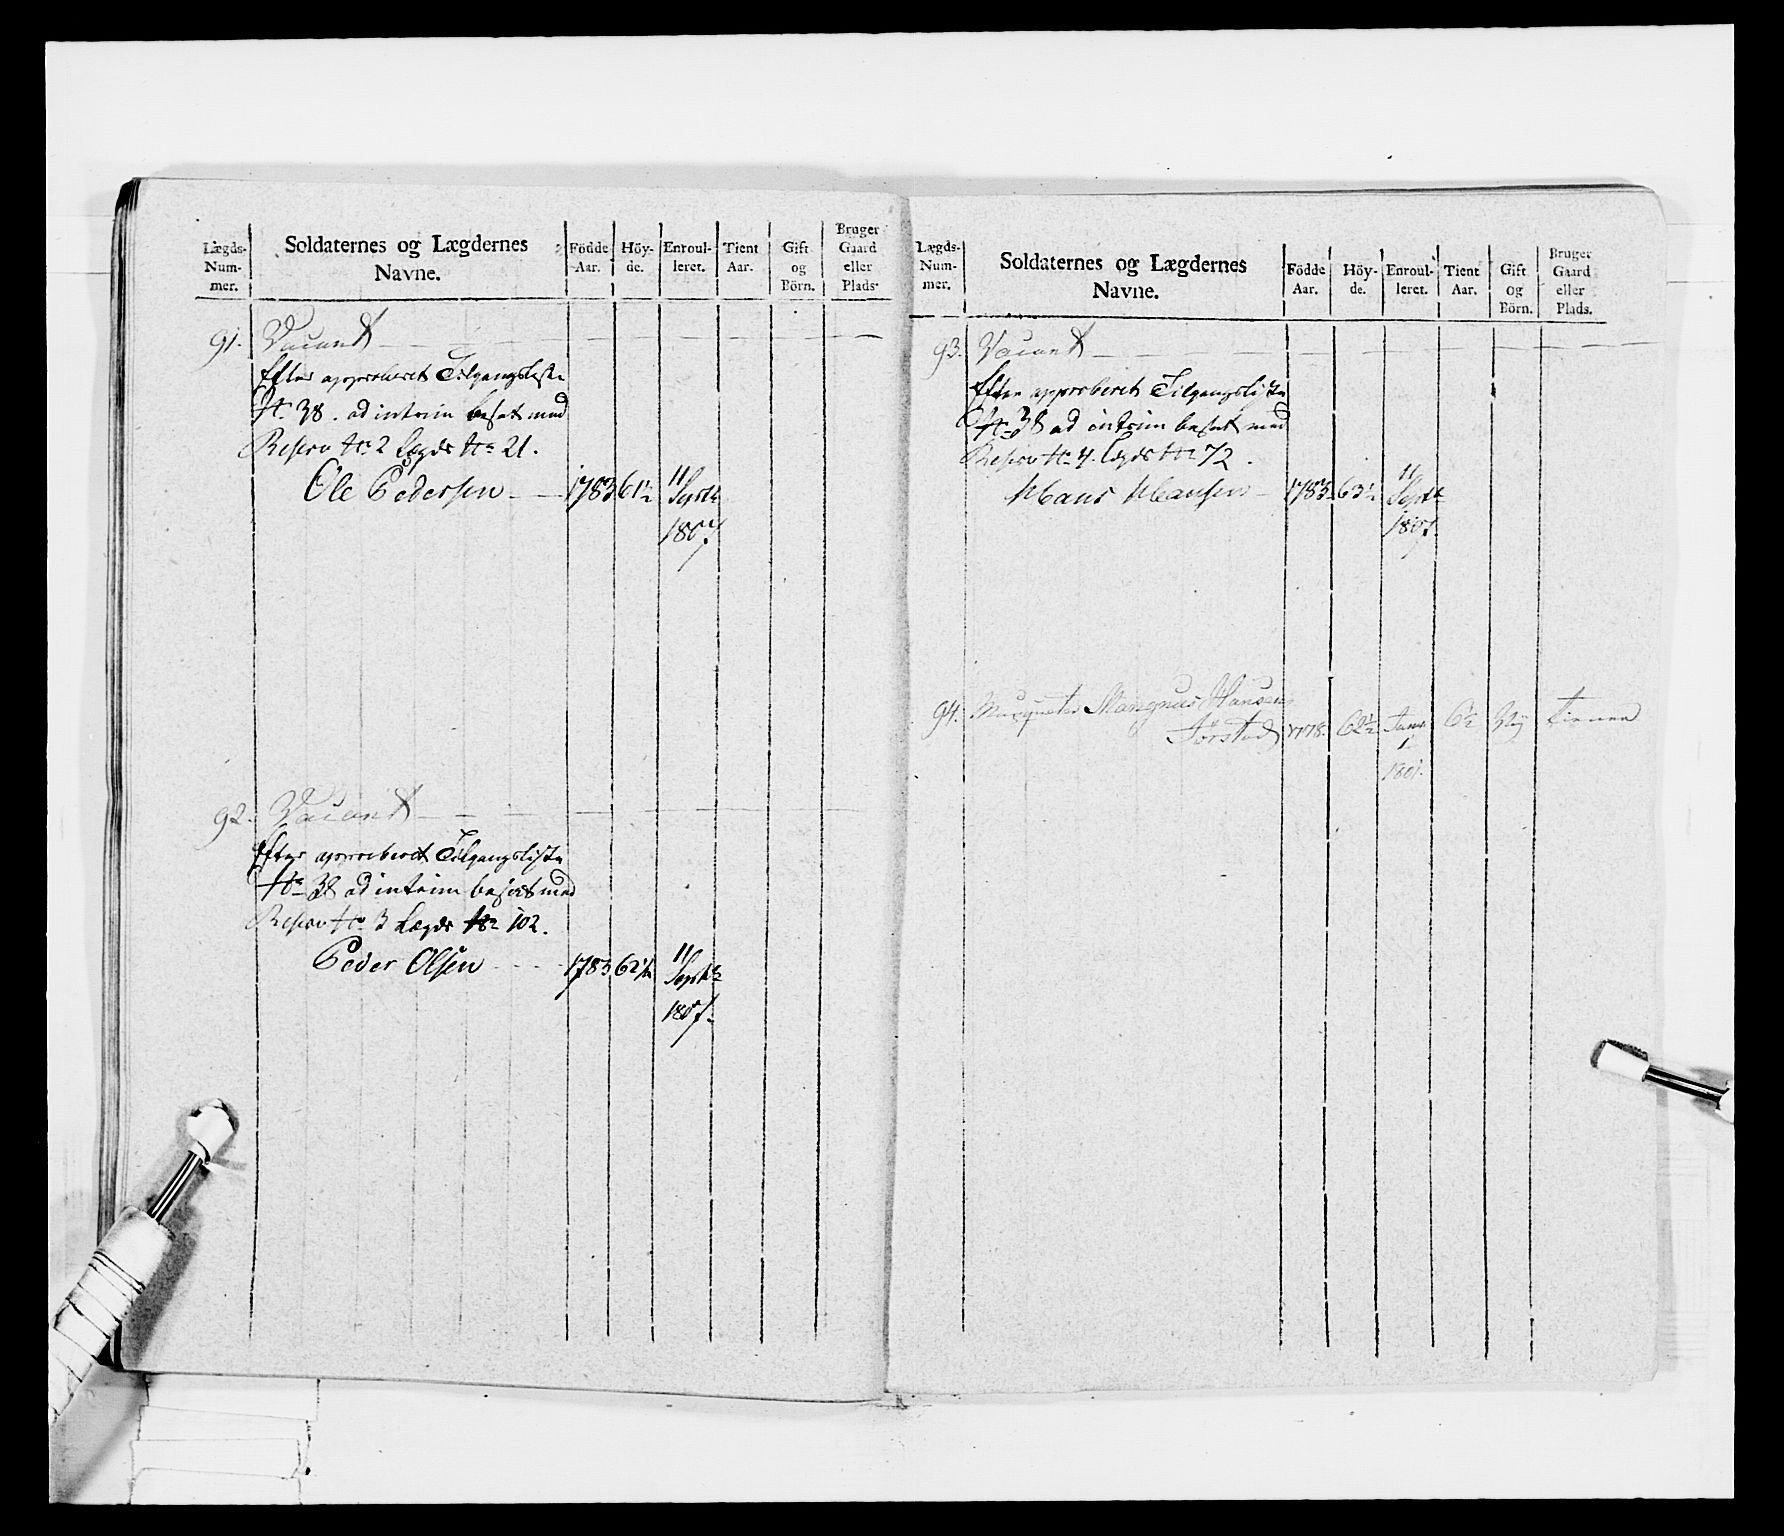 Lægds-Num-mer. Soldaternes og Lægdernes Navne. Födde Aar. Höy-de. Enroul-leret. Tient Aar. Gift og Börn. Bruger Gaard eller Plads.
91. Vacant
Efter approberet Tilgangsliste
No 38. ad intrim besat med
Reserv No 2 Lægds No 21.
Ole Pedersen 1783 61½ 11 Septbr 1807.
92. Vacant
Efter approberet Tilgangsliste
No 38 ad intrim besat med
Reserv No 3 Lægds No 102.
Peder Olsen 1783 62½ 11 Septbr 1807.
Lægds-Num-mer. Soldaternes og Lægdernes Navne. Födde Aar. Höy-de. Enroul-leret. Tient Aar. Gift og Börn. Bruger Gaard eller Plads.
93. Vacant
Efter approberet Tilgangsliste
No 38 ad intrim besat med
Reserv No 4. Lægds No 72.
Hans Hansen 1783 63½ 11 Septbr 1807.
94. Musqueter Mangnus Hansen
Torstad 1778. 62½ 1 1801. 6½ tienen